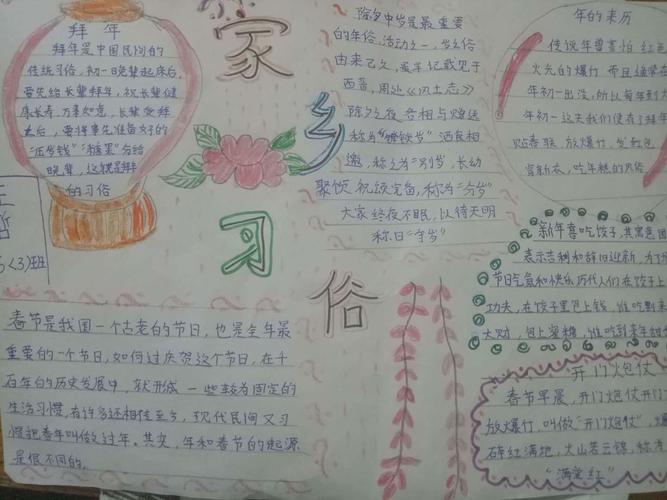 拜年
拜年是中国民间的
传统习俗,初一晚辈起床后,
要先给长辈拜年,祝长辈健
康长寿,万事如意,长辈受拜
之后,要将事先准备好的
“压岁钱”“糖果”分给
晚辈,这就是拜
的习俗
家
乡
习
俗
(3)班
除夕守岁是最重要
的年俗活动之一,守岁俗
由来已久,最早记载见于
西晋,周处《风土志》
除夕之夜各相与赠送
称为“馈岁”酒食相
邀,称之为“别岁”,长幼
聚饮祝颂完备,称为“分岁”
大家终夜不眠,以待天明
称曰“守岁”
年的来历
传说年兽害怕红色
火光的爆竹而且通常在
年初一出没,所以每年到大
年初一这天我们便有了拜年
贴春联,放爆竹,发红包
穿新衣,吃年糕的风俗
新年喜吃饺子,其寓意团
表示吉利和辞旧迎新,为了
节日气氛和快乐历代人们在饺子
功夫,在饺子里包上钱,谁吃到来
大财,包上蜜糖,谁吃到来年甜
春节是我国一个古老的节日,也是全年最
重要的一个节日,如何过庆贺这个节日,在千
百年的历史发展中,就形成一些较为固定的
生活习惯,有许多还相传至今,现代民间又习
惯把春年叫做过年。其实,年和春节的起源
是很不同的。
开门炮仗
春节早晨,开门炮仗开门
放爆竹,叫做“开门炮仗”,爆
碎红满地,火山若云锦,称为
“满堂红”